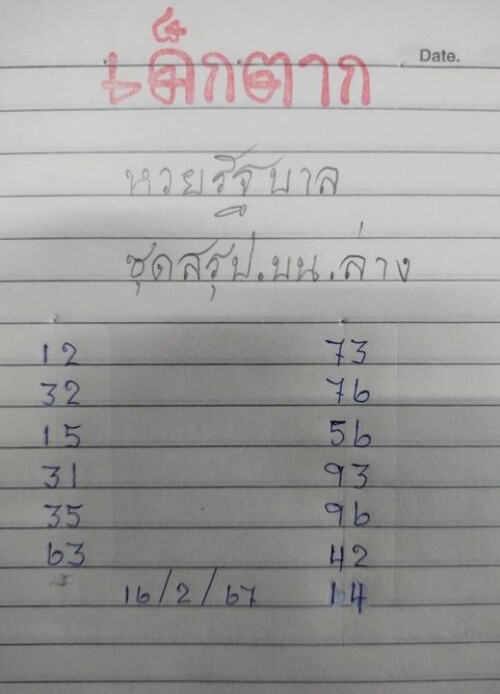 เด็กตาก
Date.
หวยรัฐบาล
ชุดสรุป.บน.ล่าง
12 73
32 76
15 56
31 93
35 96
63 42
16/2/67 14